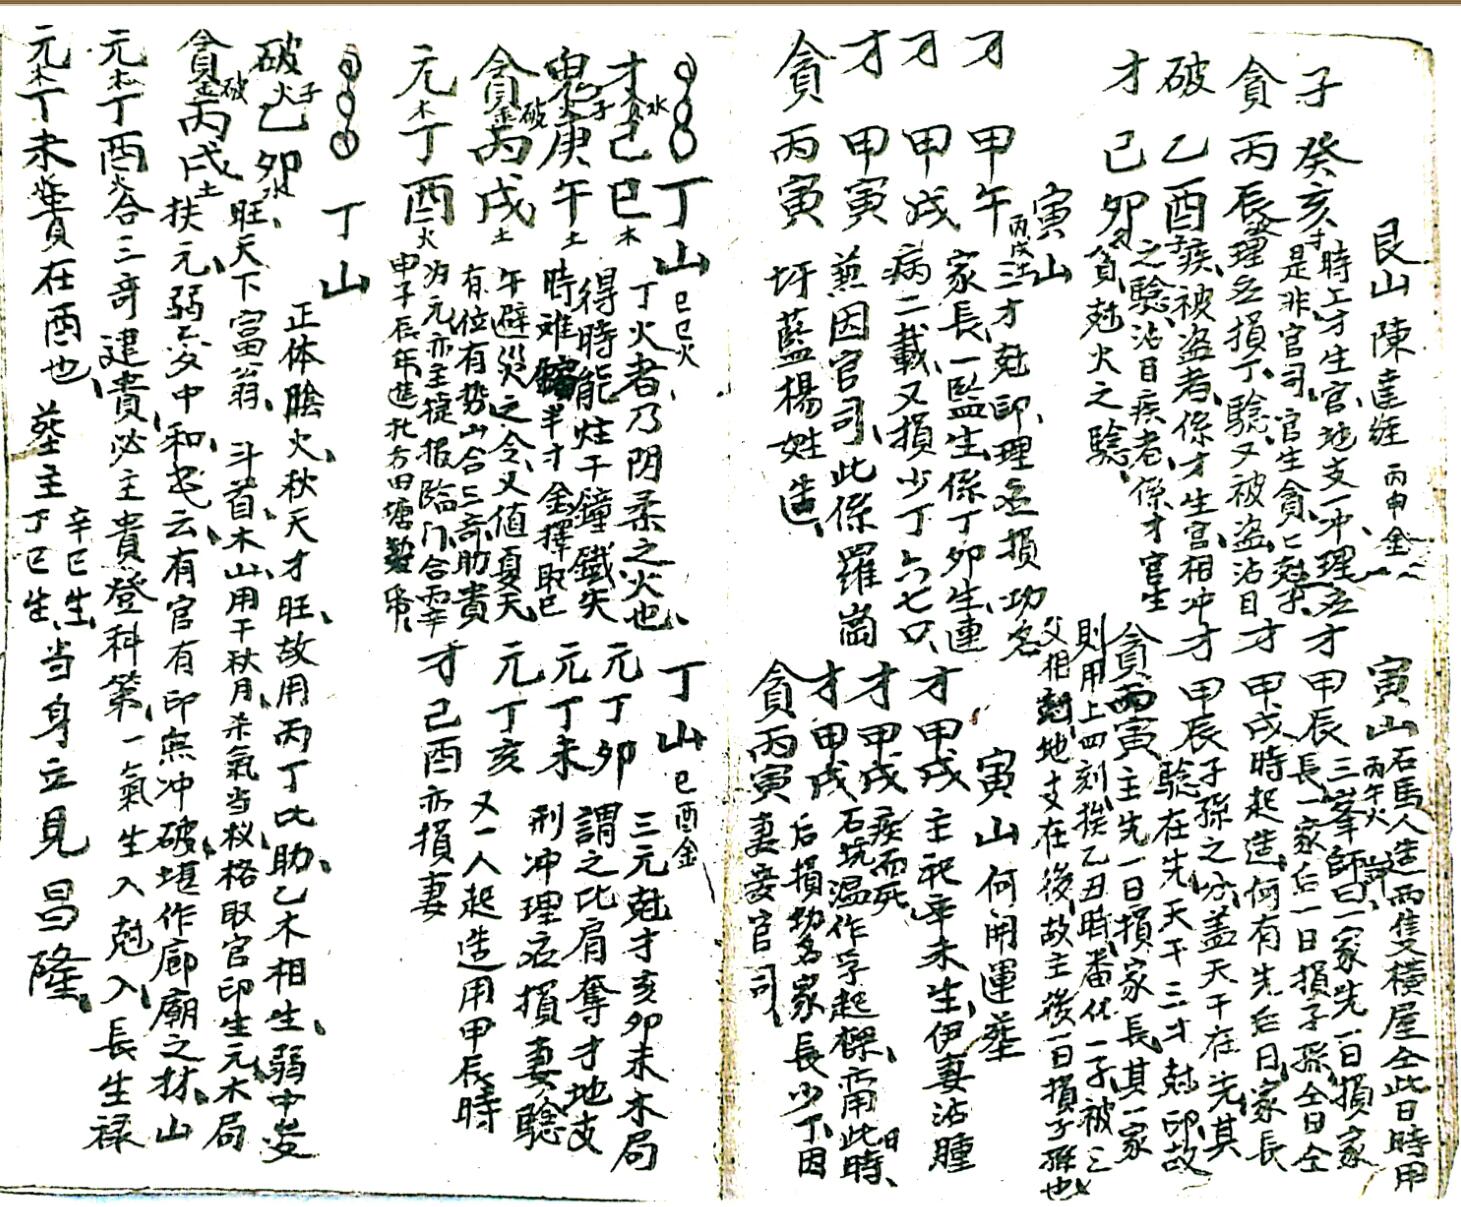 艮山 陳達經 丙申金
子 癸亥 時上才生官地支一冲理应
是非官司官生貪貪尅子
貪 丙辰 理应損丁驗又被盜沾目
破 乙酉 疾被盜者係才生官相冲
之驗沾目疾者係才官生
才 己卯 貪尅火之驗
寅山 丙戌土
才 甲午 三才尅印理应損功名
家長一監生係丁卯生連
才 甲戌 病二載又損少丁六七口
才 甲寅 兼因官司此係羅崗
貪 丙寅 圩藍楊姓造
寅山 丙午火 石馬人造両隻橫屋仝此日時用
才 甲辰 三峯師曰一家先一日損家
長一家后一日損子孫仝日仝
才 甲戌 時起造何有先后日家長
才 甲辰 子孫之分盖天干在先其
驗在先天干三才尅印故
貪 丙寅 主先一日損家長其一家
則用上四刻挨乙丑時番化一子被三
父相尅地支在後故主後一日損子孫也
寅山 何開運塟
才 甲戌 主祀辛未生伊妻沾腫
才 甲戌 疾而死
石坑温作孚起樑亦用此日時
才 甲戌 后損功名家長少丁因
貪 丙寅 妻妾官司
丁山 己巳火
才 己巳木 丁火者乃阴柔之火也
得時能炷干鐘鐵失
鬼 庚午土 時难鎔半才金擇取巳
午避災之令又值夏天
貪 丙戌土 有位有势山合三奇助貴
元木 丁酉火 为元亦主捷报臨门合丙辛
申子辰年進北方田塘契券
丁山 己酉金
元 丁卯 三元尅才亥卯未木局
謂之比肩奪才地支
元 丁未 刑冲理应損妻驗
元 丁亥 又一人起造用甲辰時
才 己酉 亦損妻
丁山
正体陰火秋天才旺故用丙丁比助乙木相生弱中变
破 乙卯水 旺天下富翁 斗首木山用干秋月杀氣当权格取官印生元木局
貪 丙戌土 扶元弱变中和也云有官有印無冲破堪作廊廟之材山
元木 丁酉火 合三奇建貴必主貴登科第一氣生入尅入長生禄
元木 丁未 貴在酉也 塟主 辛巳生 丁巳生 当身立見昌隆